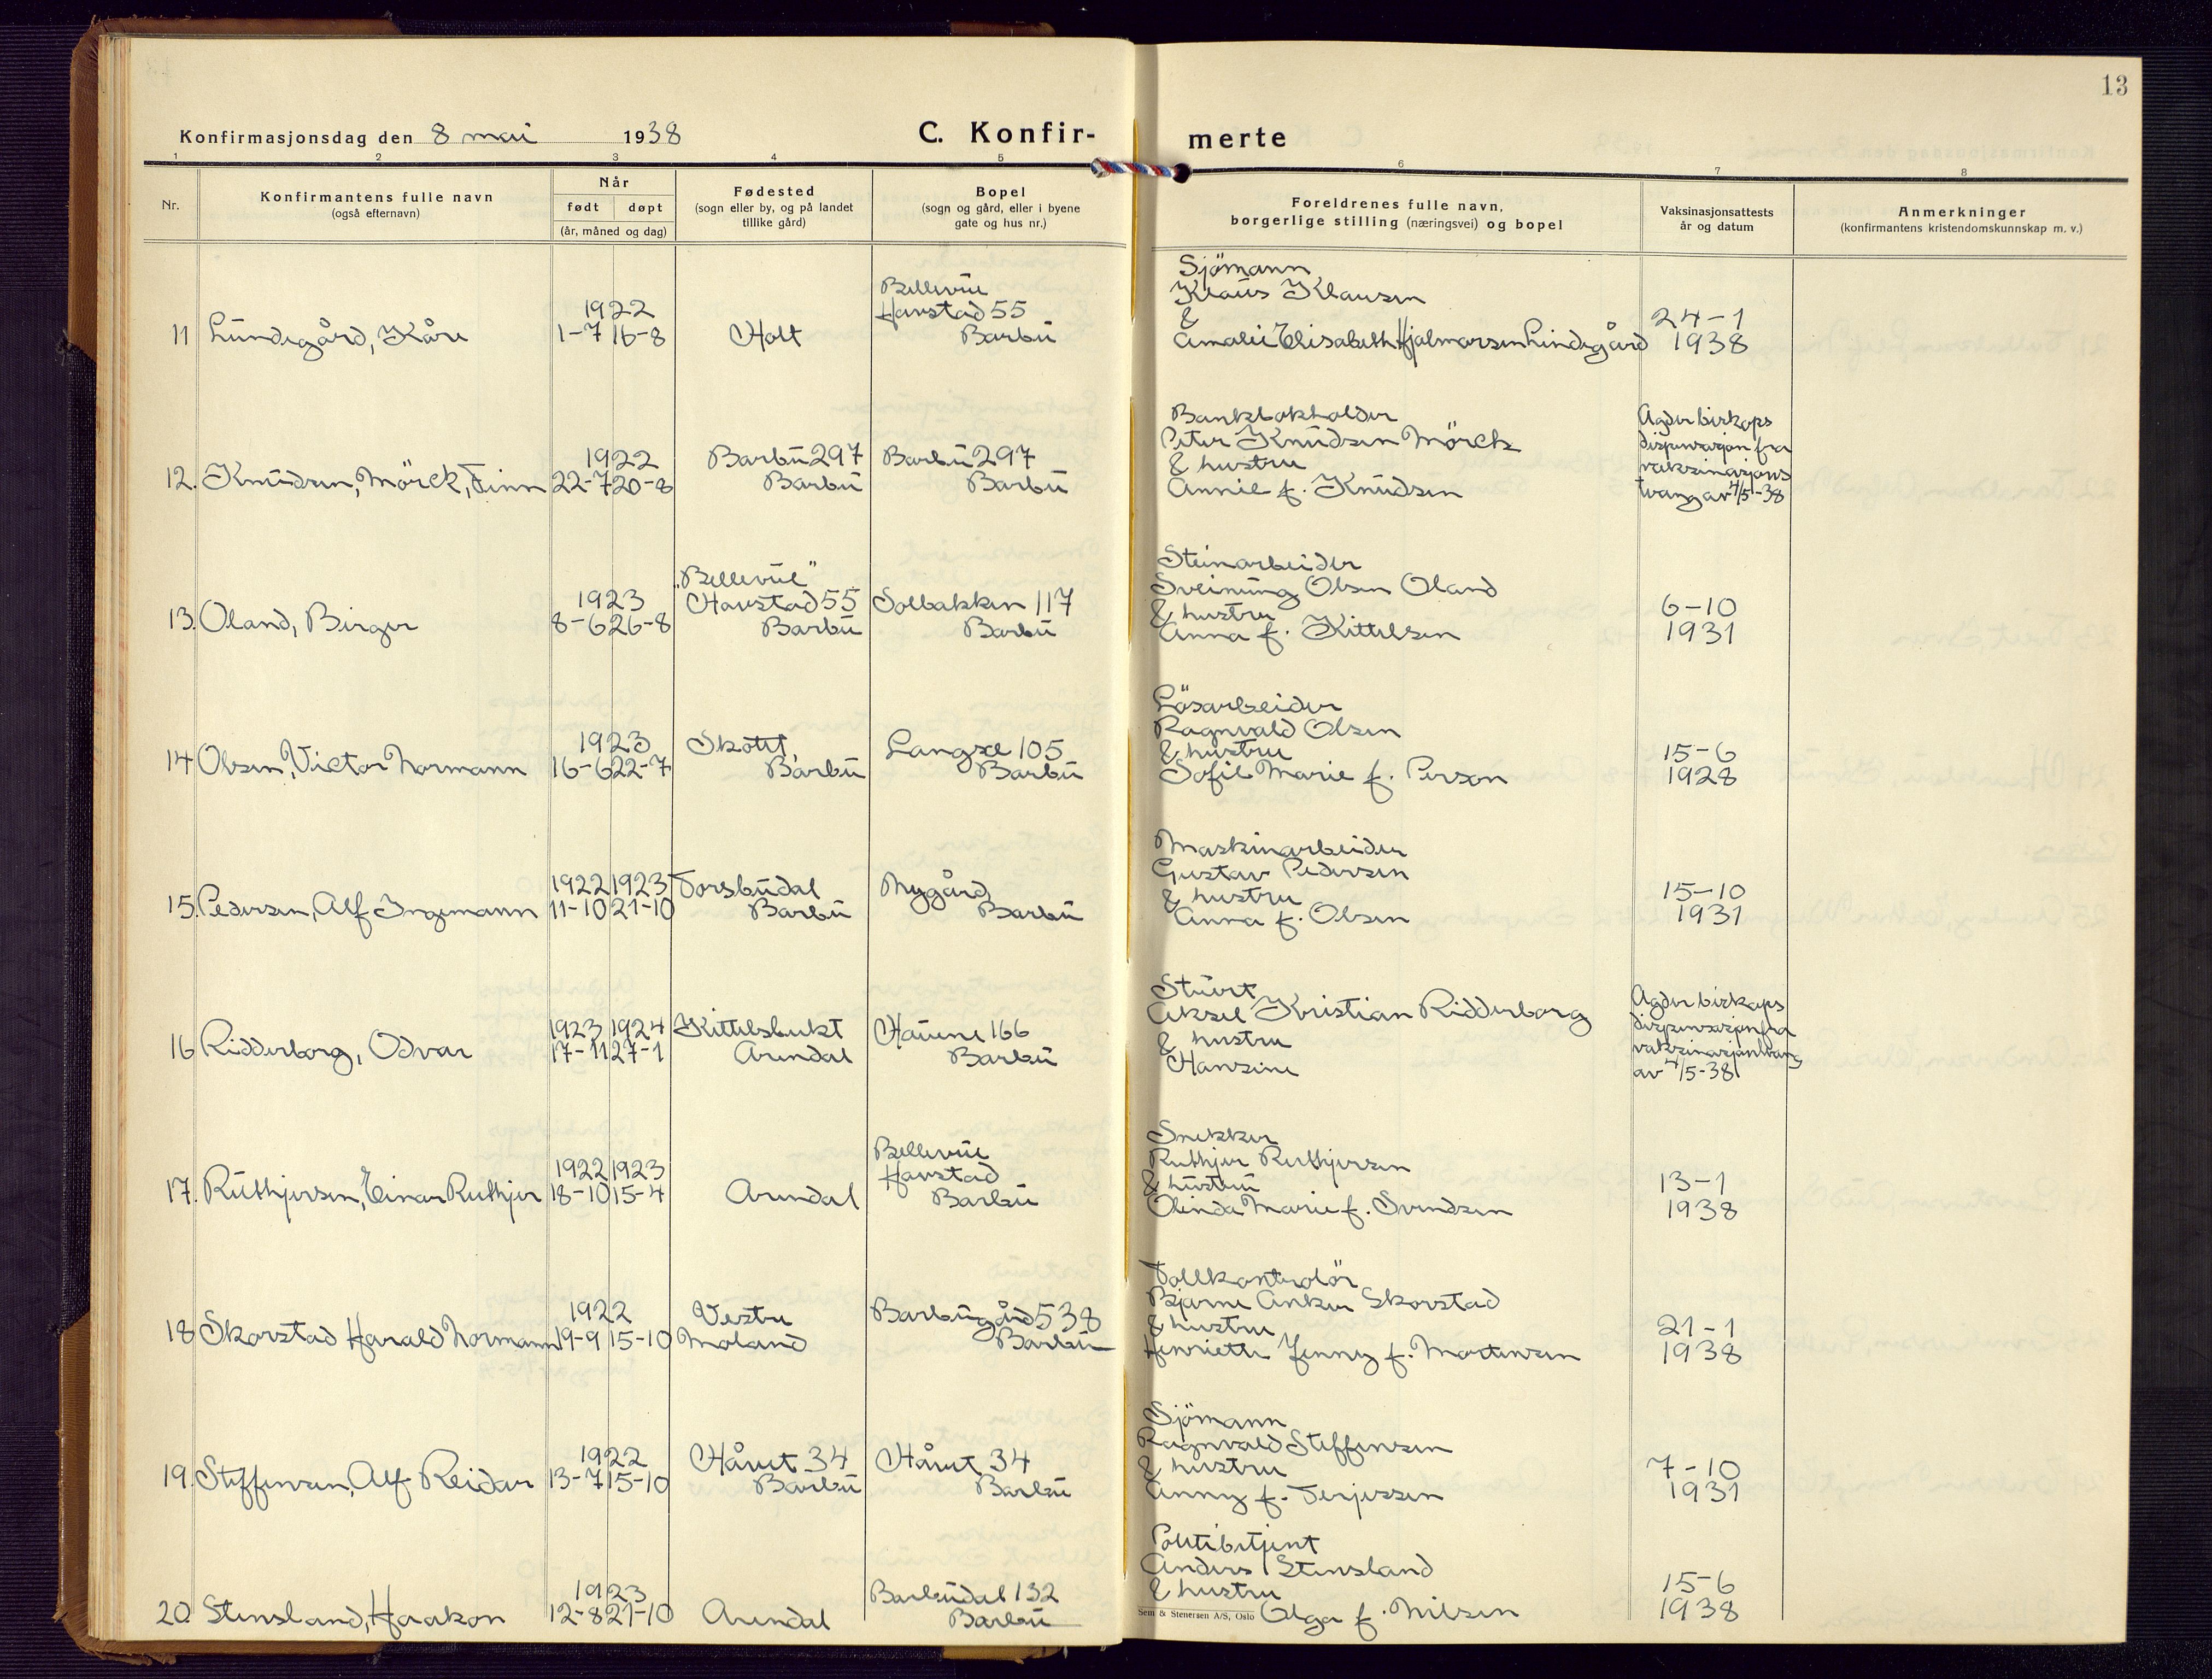 13
Konfirmasjonsdag den 8 mai 1938
C. Konfir-
merte
1 2 3 4 5 6 7 8
Nr.
Konfirmantens fulle navn
(også efternavn)
Når
født døpt
(år, måned og dag)
Fødested
(sogn eller by, og på landet
tillike gård)
Bopel
(sogn og gård, eller i byene
gate og hus nr.)
Foreldrenes fulle navn,
borgerlige stilling (næringsvei) og bopel
Vaksinasjonsattests
år og datum
Anmerkninger
(konfirmantens kristendomskunnskap m. v.)
11 Lundegård, Kåre
1922
1-7 16-8
Holt
Bellevue
Havstad 55
Barbu
Sjömann
Klaus Klausen
&
Amalie Elisabeth Hjalmarsen Lindegård
24-1
1938
12. Knudsen, Mörck, Finn
1922
22-7 20-8
Barbu 297
Barbu
Barbu 297
Barbu
Bankbokholder
Peter Knudsen Mörck
& hustru
Annie f. Knudsen
Agder biskops
dispensasjon fra
vaksinasjons
tvang av 4/5-38
13. Oland, Birger
1923
8-6 26-8
"Bellevue"
Havstad 55
Barbu
Solbakken 117
Barbu
Steinarbeider
Sveinung Olsen Oland
& hustru
Anna f. Kittelsen
6-10
1931
14 Olsen, Victor Normann
1923
16-6 22-7
Skottet,
Barbu
Langsæ 105
Barbu
Lösarbeider
Ragnvald Olsen
& hustru
Sofie Marie f. Person
15-6
1928
15. Pedersen, Alf Ingemann
1922 1923
11-10 21-10
Torsbudal
Barbu
Nygård
Barbu
Maskinarbeider
Gustav Pedersen
& hustru
Anna f. Olsen
15-10
1931
16 Ridderborg, Odvar
1923 1924
17-11 27-1
Kittelsbukt
Arendal
Haune 166
Barbu
Stuert
Aksel Kristian Ridderborg
& hustru
Hansine
Agder biskops
dispensasjon fra
vaksinasjontvang
av 4/5-38
17. Ruthjersen, Einar Ruthjer
1922 1923
18-10 15-4
Arendal
Bellevue
Havstad
Barbu
Snekker
Ruthjer Ruthjersen
& hustru
Olinda Marie f. Svendsen
13-1
1938
18 Skorstad Harald Normann
1922
19-9 15-10
Vestre
Moland
Barbugård 538
Barbu
Tollkontrolör
Bjarne Anker Skorstad
& hustru
Henriette Jenny f. Mortensen
21-1
1938
19. Steffensen, Alf Reidar
1922
13-7 15-10
Håvet 34
Barbu
Håvet 34
Barbu
Sjömann
Ragnvald Steffensen
& hustru
Anny f. Terjessen
7-10
1931
20. Stensland, Haakon
1923
12-8 21-10
Arendal
Barbudal 132
Barbu
Politibetjent
Anders Stensland
& hustru
Olga f. Nilsen
15-6
1938
Sem & Stenersen A/S, Oslo